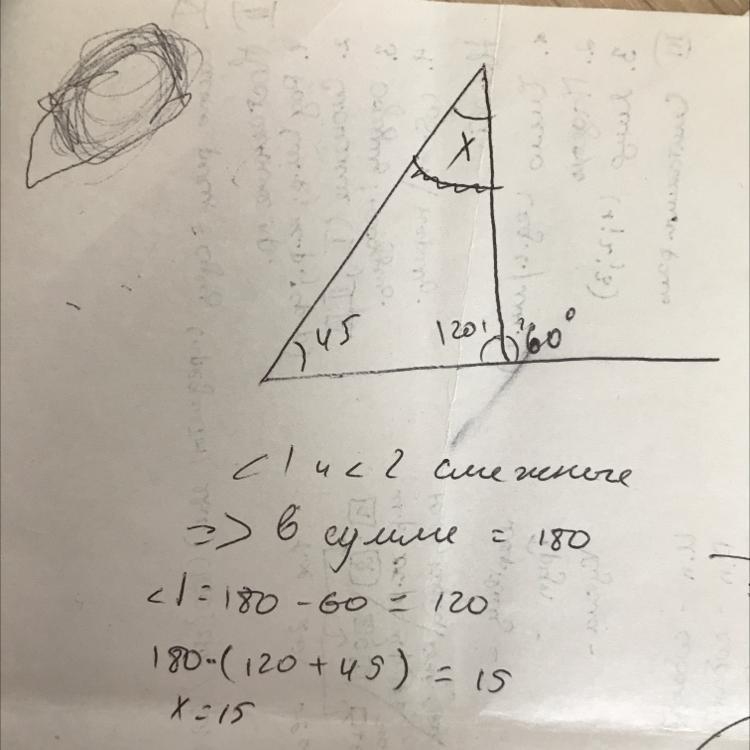 X
45
120
1
2
60°
<1 и <2 смежные
=> в сумме = 180
<1 = 180 - 60 = 120
180-(120 + 45) = 15
x = 15